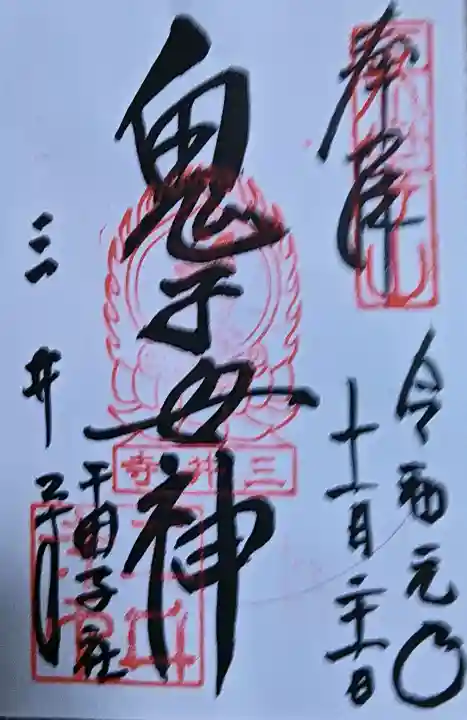 奉拝
令和元年
十一月二十一日
鬼子母神
三井寺
三井寺
千団子社